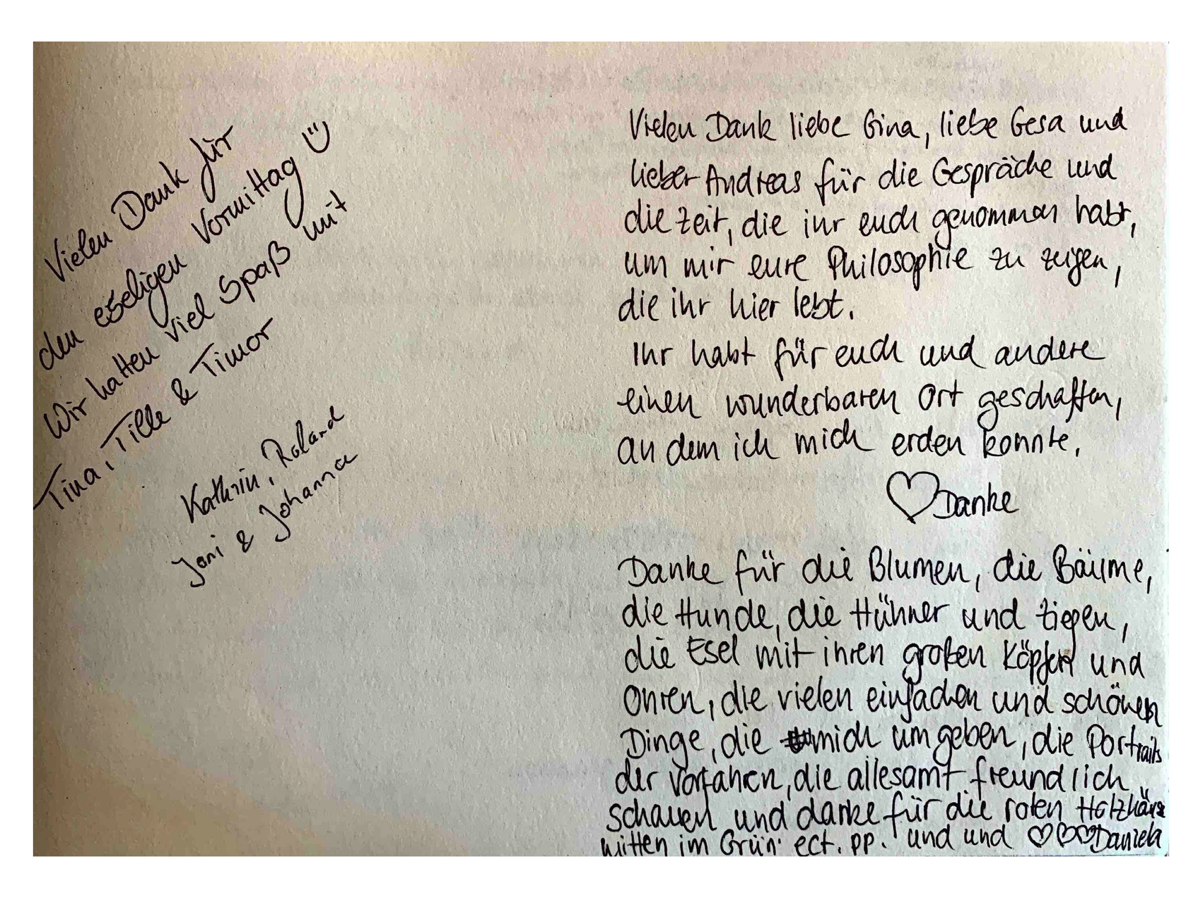 Vielen Dank für
den eseligen Vormittag
Wir hatten viel Spaß mit
Tina, Tille & Timor
Kathrin, Roland
Joni & Johanna
Vielen Dank liebe Gina, liebe Gesa und
lieber Andreas für die Gespräche und
die Zeit, die ihr euch genommen habt,
um mir eure Philosophie zu zeigen,
die ihr hier lebt.
Ihr habt für euch und andere
einen wunderbaren Ort geschaffen,
an dem ich mich erden konnte.
♡ Danke
Danke für die Blumen, die Bäume,
die Hunde, die Hühner und Ziegen,
die Esel mit ihren großen Köpfen und
Ohren, die vielen einfachen und schönen
Dinge, die mich umgeben, die Portraits
der Vorfahren, die allesamt freundlich
schauen und danke für die roten
mitten im Grün ect. pp. und und ♡♡♡ Daniela